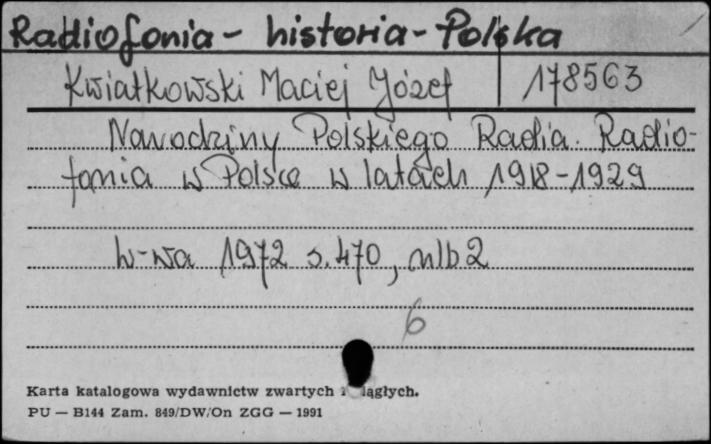 Radiofonia - historia - Polska
Kwiatkowski Maciej Józef 178563
Narodziny Polskiego Radia. Radio-
fonia w Polsce w latach 1918-1929
W-wa 1972 s. 470, nlb 2
6
Karta katalogowa wydawnictw zwartych i ciągłych.
PU — B144 Zam. 849/DW/On ZGG — 1991